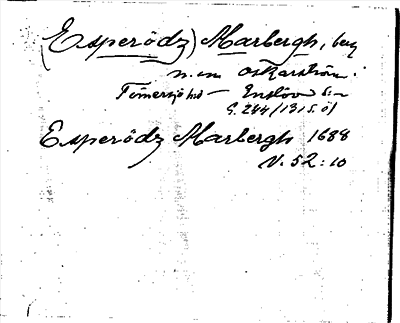 (Esperödz) Marbergh, berg
n. om Oskarström.
Tömersjö hd — Enslövs sn
G. 264/1315.01
Esperödz Marbergh 1688
V. 52:10